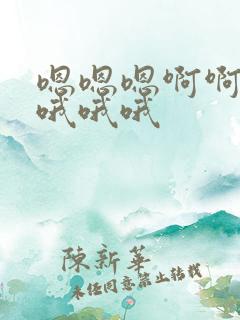 嗯嗯嗯啊啊
哦哦哦
陳新華
未经同意禁止转载